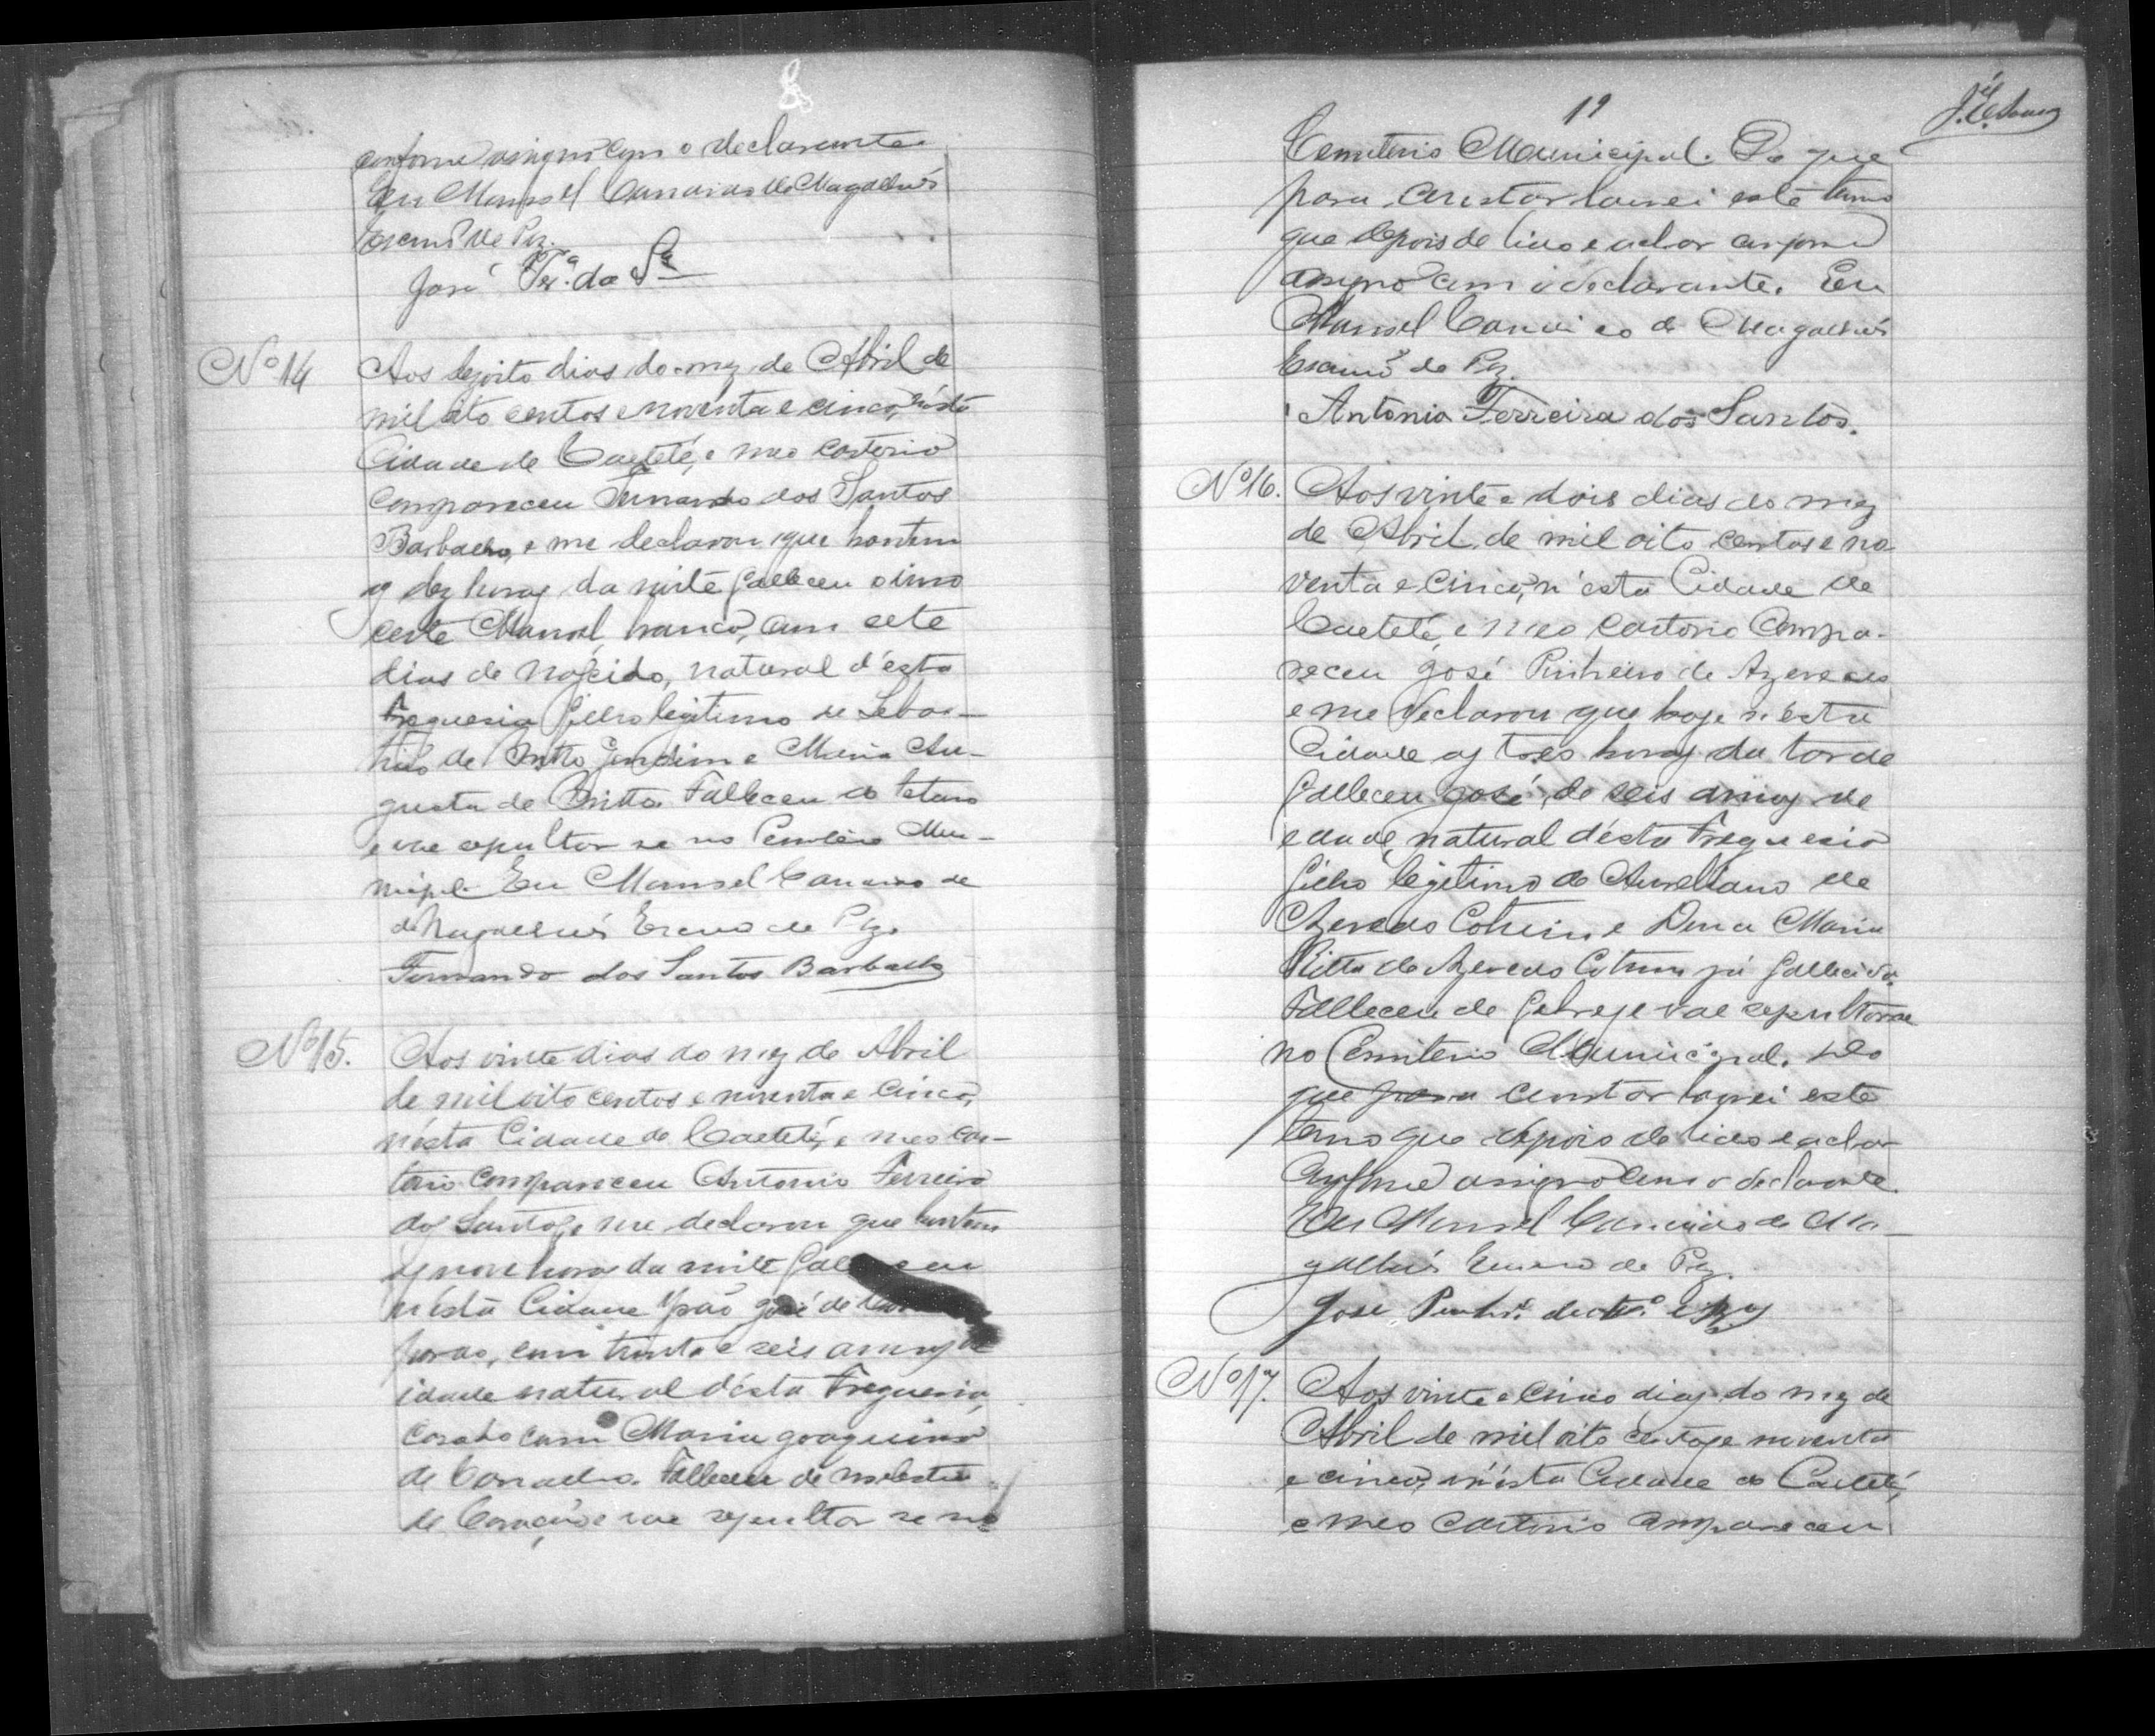 conforme assigno com o declarante.
Eu Manoel Cancio de Magalhães
Escrivº de Paz.
José Ferª da Sª
Nº 14
Aos dezoito dias do mez de Abril de
mil oito centos e noventa e cinco, n'esta
Cidade de Caeteté, e meo cartorio
compareceu Fernando dos Santos
Barbalho, e me declarou que hontem
as dez horas da noite falleceu o inno
cente Manoel, branco, com sete
dias de nascido, natural d'esta
Freguesia filho legitimo de Sebas-
tião de Britto Gondim e Maria Au-
gusta de Britto. Falleceu de tetano
e vae sepultar se no Cemiterio Mu-
nicipal. Eu Manoel Cancio de
de Magalhães Escrivº de Paz.
Fernando dos Santos Barbalho
Nº 15.
Aos vinte dias do mez de Abril
de mil oito centos e noventa e cinco,
n'esta Cidade de Caeteté, e meo car-
torio compareceu Antonio Ferreira
dos Santos, e me declarou que hontem
as nove horas da noite falleceu
n'esta Cidade João José de
pardo, com trinta e seis annos de
idade natural d'esta Freguesia,
casado com Maria Joaquina
de Carvalho. Falleceu de molestia
de Coração e vae sepultar se no
19
Cemiterio Municipal. Do que
para constar lavrei este termo
que depois de lido e achar conforme
assigno com o declarante. Eu
Manoel Cancio de Magalhães
Escrivº de Paz.
Antonio Ferreira dos Santos.
Nº 16.
Aos vinte e dois dias do mez
de Abril de mil oito centos e no
venta e cinco, n'esta Cidade de
Caeteté, e meo cartorio compa-
receu José Pinheiro de Azevedo
e me declarou que hoje n'esta
Cidade as tres horas da tarde
falleceu José, de seis annos de
edade, natural d'esta Freguesia
filho legitimo de Aureliano de
Azevedo Cotrim e Dona Maria
Ritta de Azevedo Cotrim já fallecida.
Falleceu de febre, e vae sepultar se
no Cemiterio Municipal. Do
que para constar lavrei este
termo que depois de lido e achar
conforme assigno com o declarante.
Eu Manoel Cancio de Ma-
galhães Escrivº de Paz.
José Pinhº de
Nº 17.
Aos vinte e cinco dias do mez de
Abril de mil oito centos e noventa
e cinco, n'esta Cidade de Caeteté,
e meo cartorio compareceu